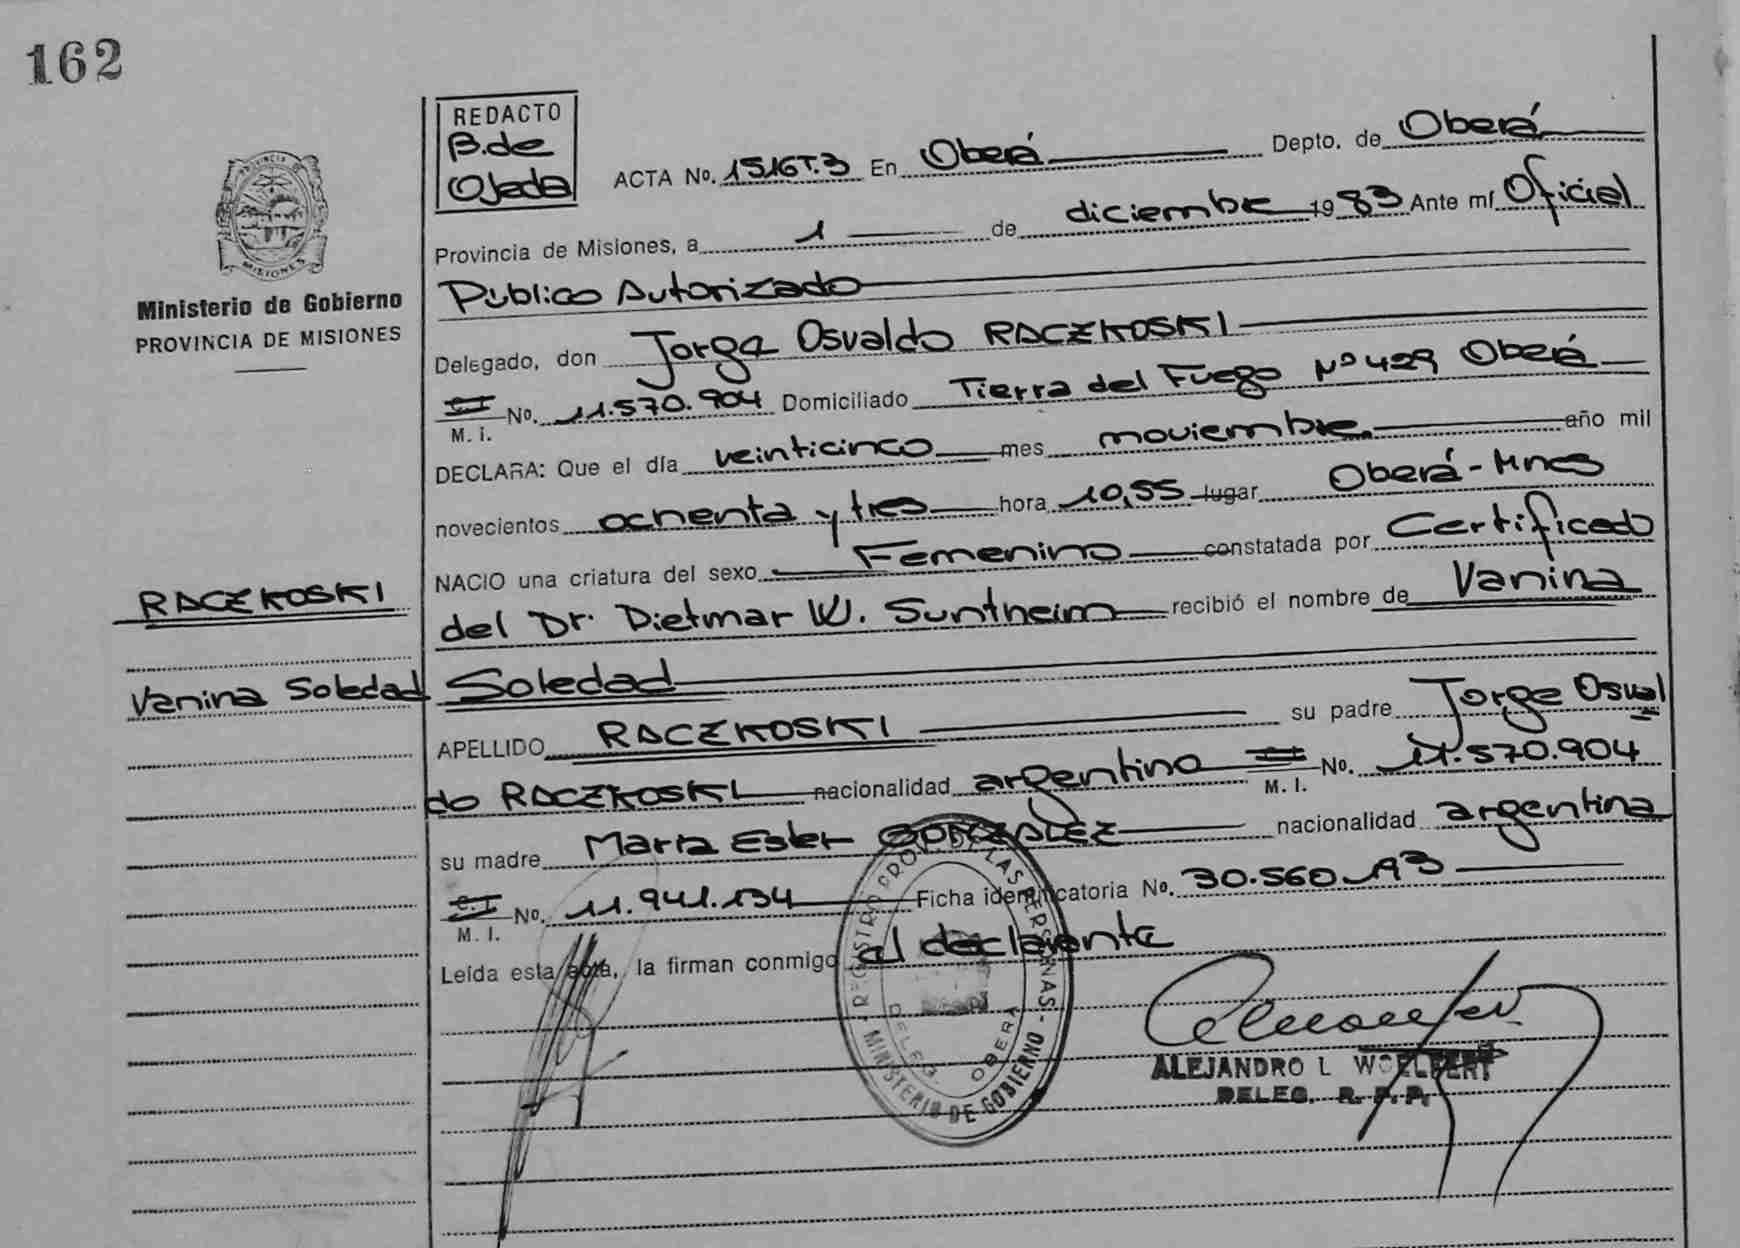 162
REDACTO
B. de
Ojeda
ACTA No. 1516T.3 En Oberá Depto. de Oberá
Provincia de Misiones, a 1 de diciembre 1983 Ante mí Oficial
Público Autorizado
Delegado, don Jorge Osvaldo RACZKOSKI
C.I. No. 11.570.904 Domiciliado Tierra del Fuego Nº 429 Oberá
M. I.
DECLARA: Que el día veinticinco mes noviembre año mil
novecientos ochenta y tres hora 10,55 lugar Oberá - Mnes
NACIO una criatura del sexo Femenino constatada por Certificado
del Dr. Dietmar W. Suntheim recibió el nombre de Vanina
Soledad
APELLIDO RACZKOSKI su padre Jorge Osval
do RACZKOSKI nacionalidad argentino C.I. No. 11.570.904
M. I.
su madre María Ester GONZALEZ nacionalidad argentina
C.I. No. 11.941.134 Ficha identificatoria No. 30.560.193
M. I.
Leída esta acta, la firman conmigo el declarante
PROVINCIA DE
MISIONES
Ministerio de Gobierno
PROVINCIA DE MISIONES
RACZKOSKI
Vanina Soledad
REGISTRO PROV. DE LAS PERSONAS
MINISTERIO DE GOBIERNO
DELEG. OBERA
ALEJANDRO L WOELFERT
DELEG. R. P. P.